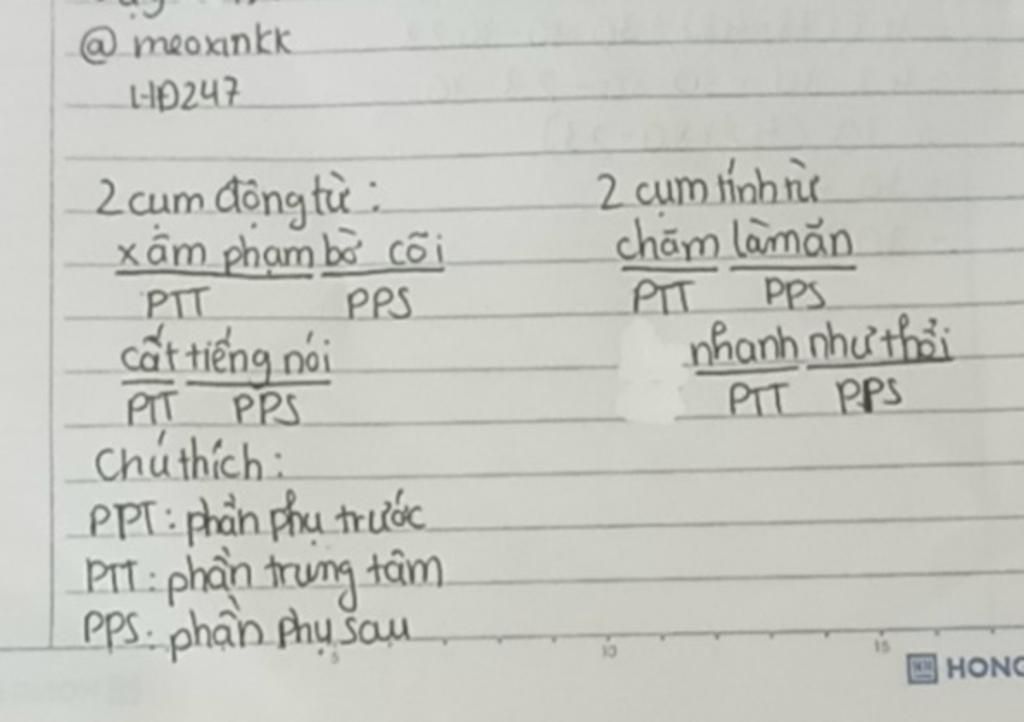 @ meoxinkk
HĐ247
2 cụm động từ :
xâm phạm bờ cõi
PTT PPS
cất tiếng nói
PTT PPS
2 cụm tính từ
chăm làm ăn
PTT PPS
nhanh như thổi
PTT PPS
Chú thích :
PPT : phần phụ trước
PTT : phần trung tâm
PPS : phần phụ sau
5 10 15
HONG